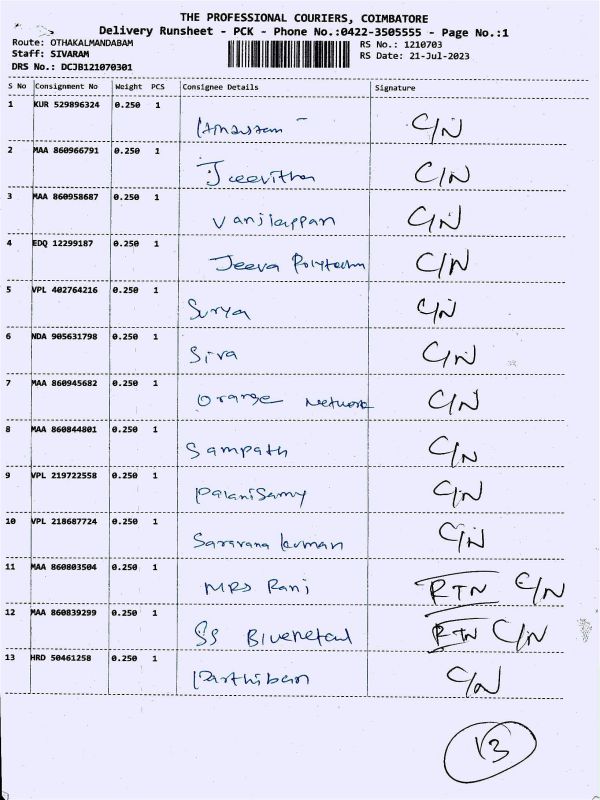 THE PROFESSIONAL COURIERS, COIMBATORE
Delivery Runsheet - PCK - Phone No.:0422-3505555 - Page No.:1
Route: OTHAKALMANDABAM RS No.: 1210703
Staff: SIVARAM RS Date: 21-Jul-2023
DRS No.: DCJB121070301
S No Consignment No Weight PCS Consignee Details Signature
1 KUR 529896324 0.250 1 C/N
2 MAA 860966791 0.250 1 Jeevitha C/N
3 MAA 860958687 0.250 1 Vanjiappan C/N
4 EDQ 12299187 0.250 1 Jeeva Polytechn C/N
5 VPL 402764216 0.250 1 Surya C/N
6 NDA 905631798 0.250 1 Siva C/N
7 MAA 860945682 0.250 1 Orange Network C/N
8 MAA 860844801 0.250 1 Sampath C/N
9 VPL 219722558 0.250 1 PalaniSamy C/N
10 VPL 218687724 0.250 1 Saravana kuman C/N
11 MAA 860803504 0.250 1 MRS Rani RTN C/N
12 MAA 860839299 0.250 1 SS RTN C/N
13 HRD 50461258 0.250 1 Parthiban C/N
13